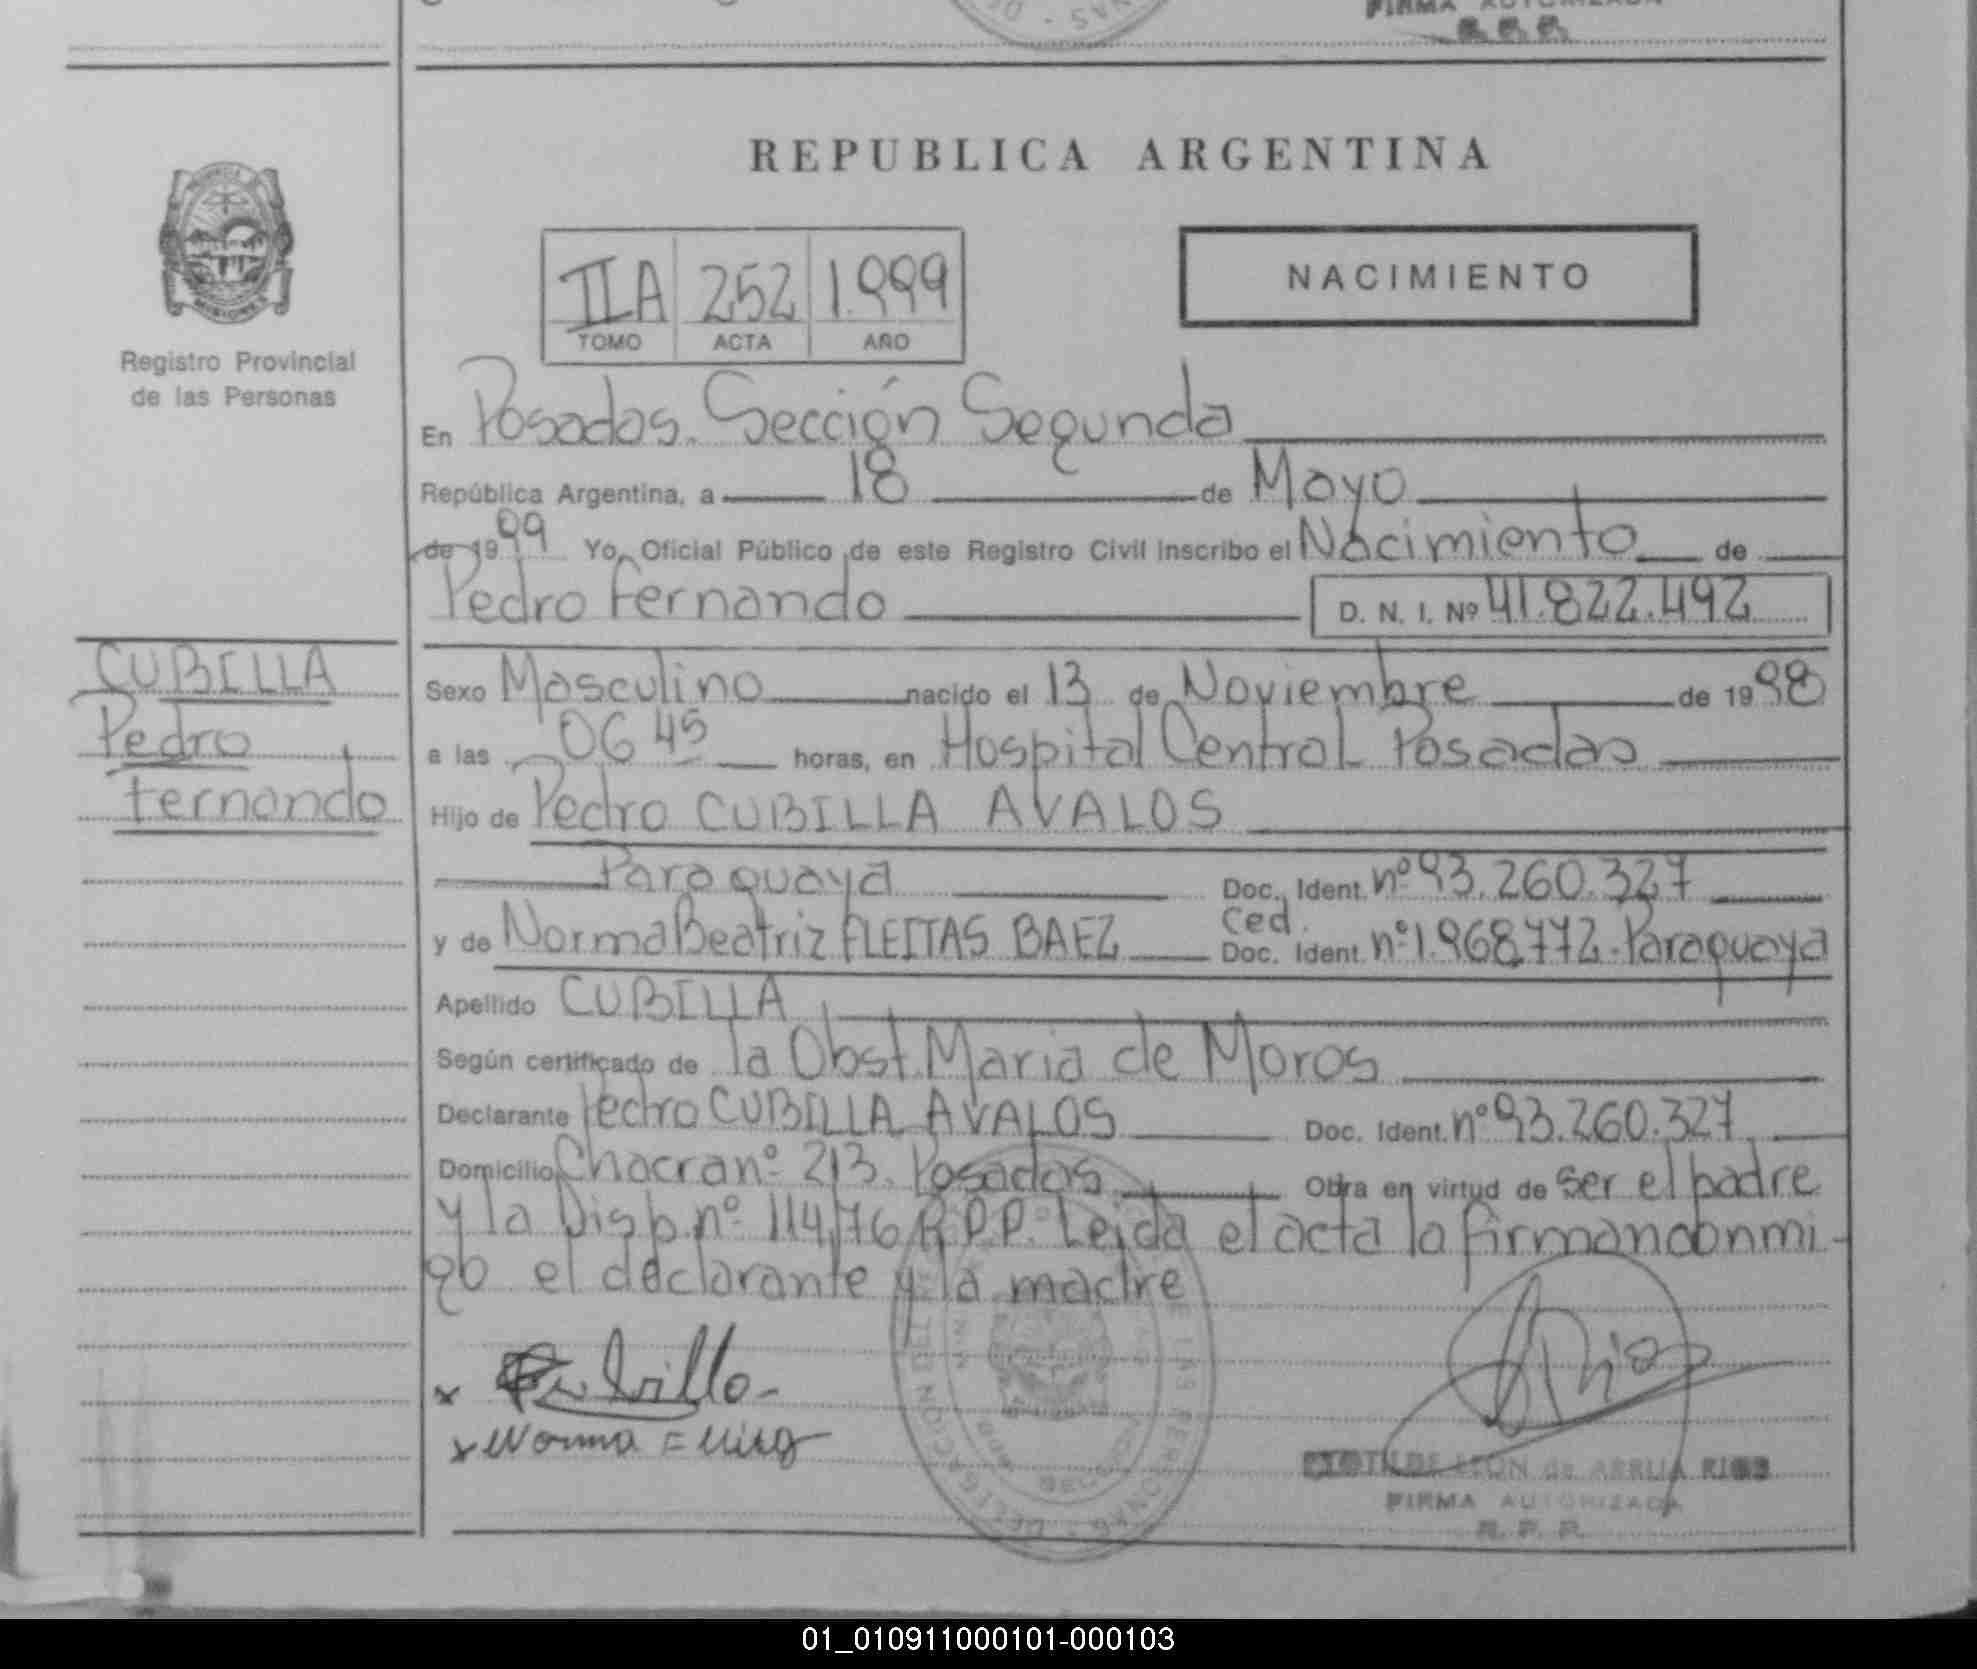 FIRMA AUTORIZADA
REPUBLICA ARGENTINA
IIA 252 1.999
TOMO ACTA AÑO
NACIMIENTO
Registro Provincial
de las Personas
En Posadas. Sección Segunda
República Argentina, a 18 de Mayo
de 1999 Yo, Oficial Público de este Registro Civil inscribo el Nacimiento de
Pedro Fernando D. N. I. Nº 41.822.492
CUBILLA
Pedro
Fernando
Sexo Masculino nacido el 13 de Noviembre de 1998
a las 0645 horas, en Hospital Central Posadas
Hijo de Pedro CUBILLA AVALOS
Paraguaya Doc. Ident. nº 93.260.327
Ced.
y de Norma Beatriz FLEITAS BAEZ Doc. Ident. nº 1.968.772. Paraguaya
Apellido CUBILLA
Según certificado de la Obst. Maria de Moros
Declarante Pedro CUBILLA AVALOS Doc. Ident. nº 93.260.327
Domicilio Chacra nº 213. Posadas Obra en virtud de ser el padre
y la Disp. nº 114/76 R.P.P. Leida el acta la firman conmi-
go el declarante y la madre
x Cubilla
x Norma
LEON de ARRUA RIOS
FIRMA AUTORIZADA
R. P. P.
01_010911000101-000103